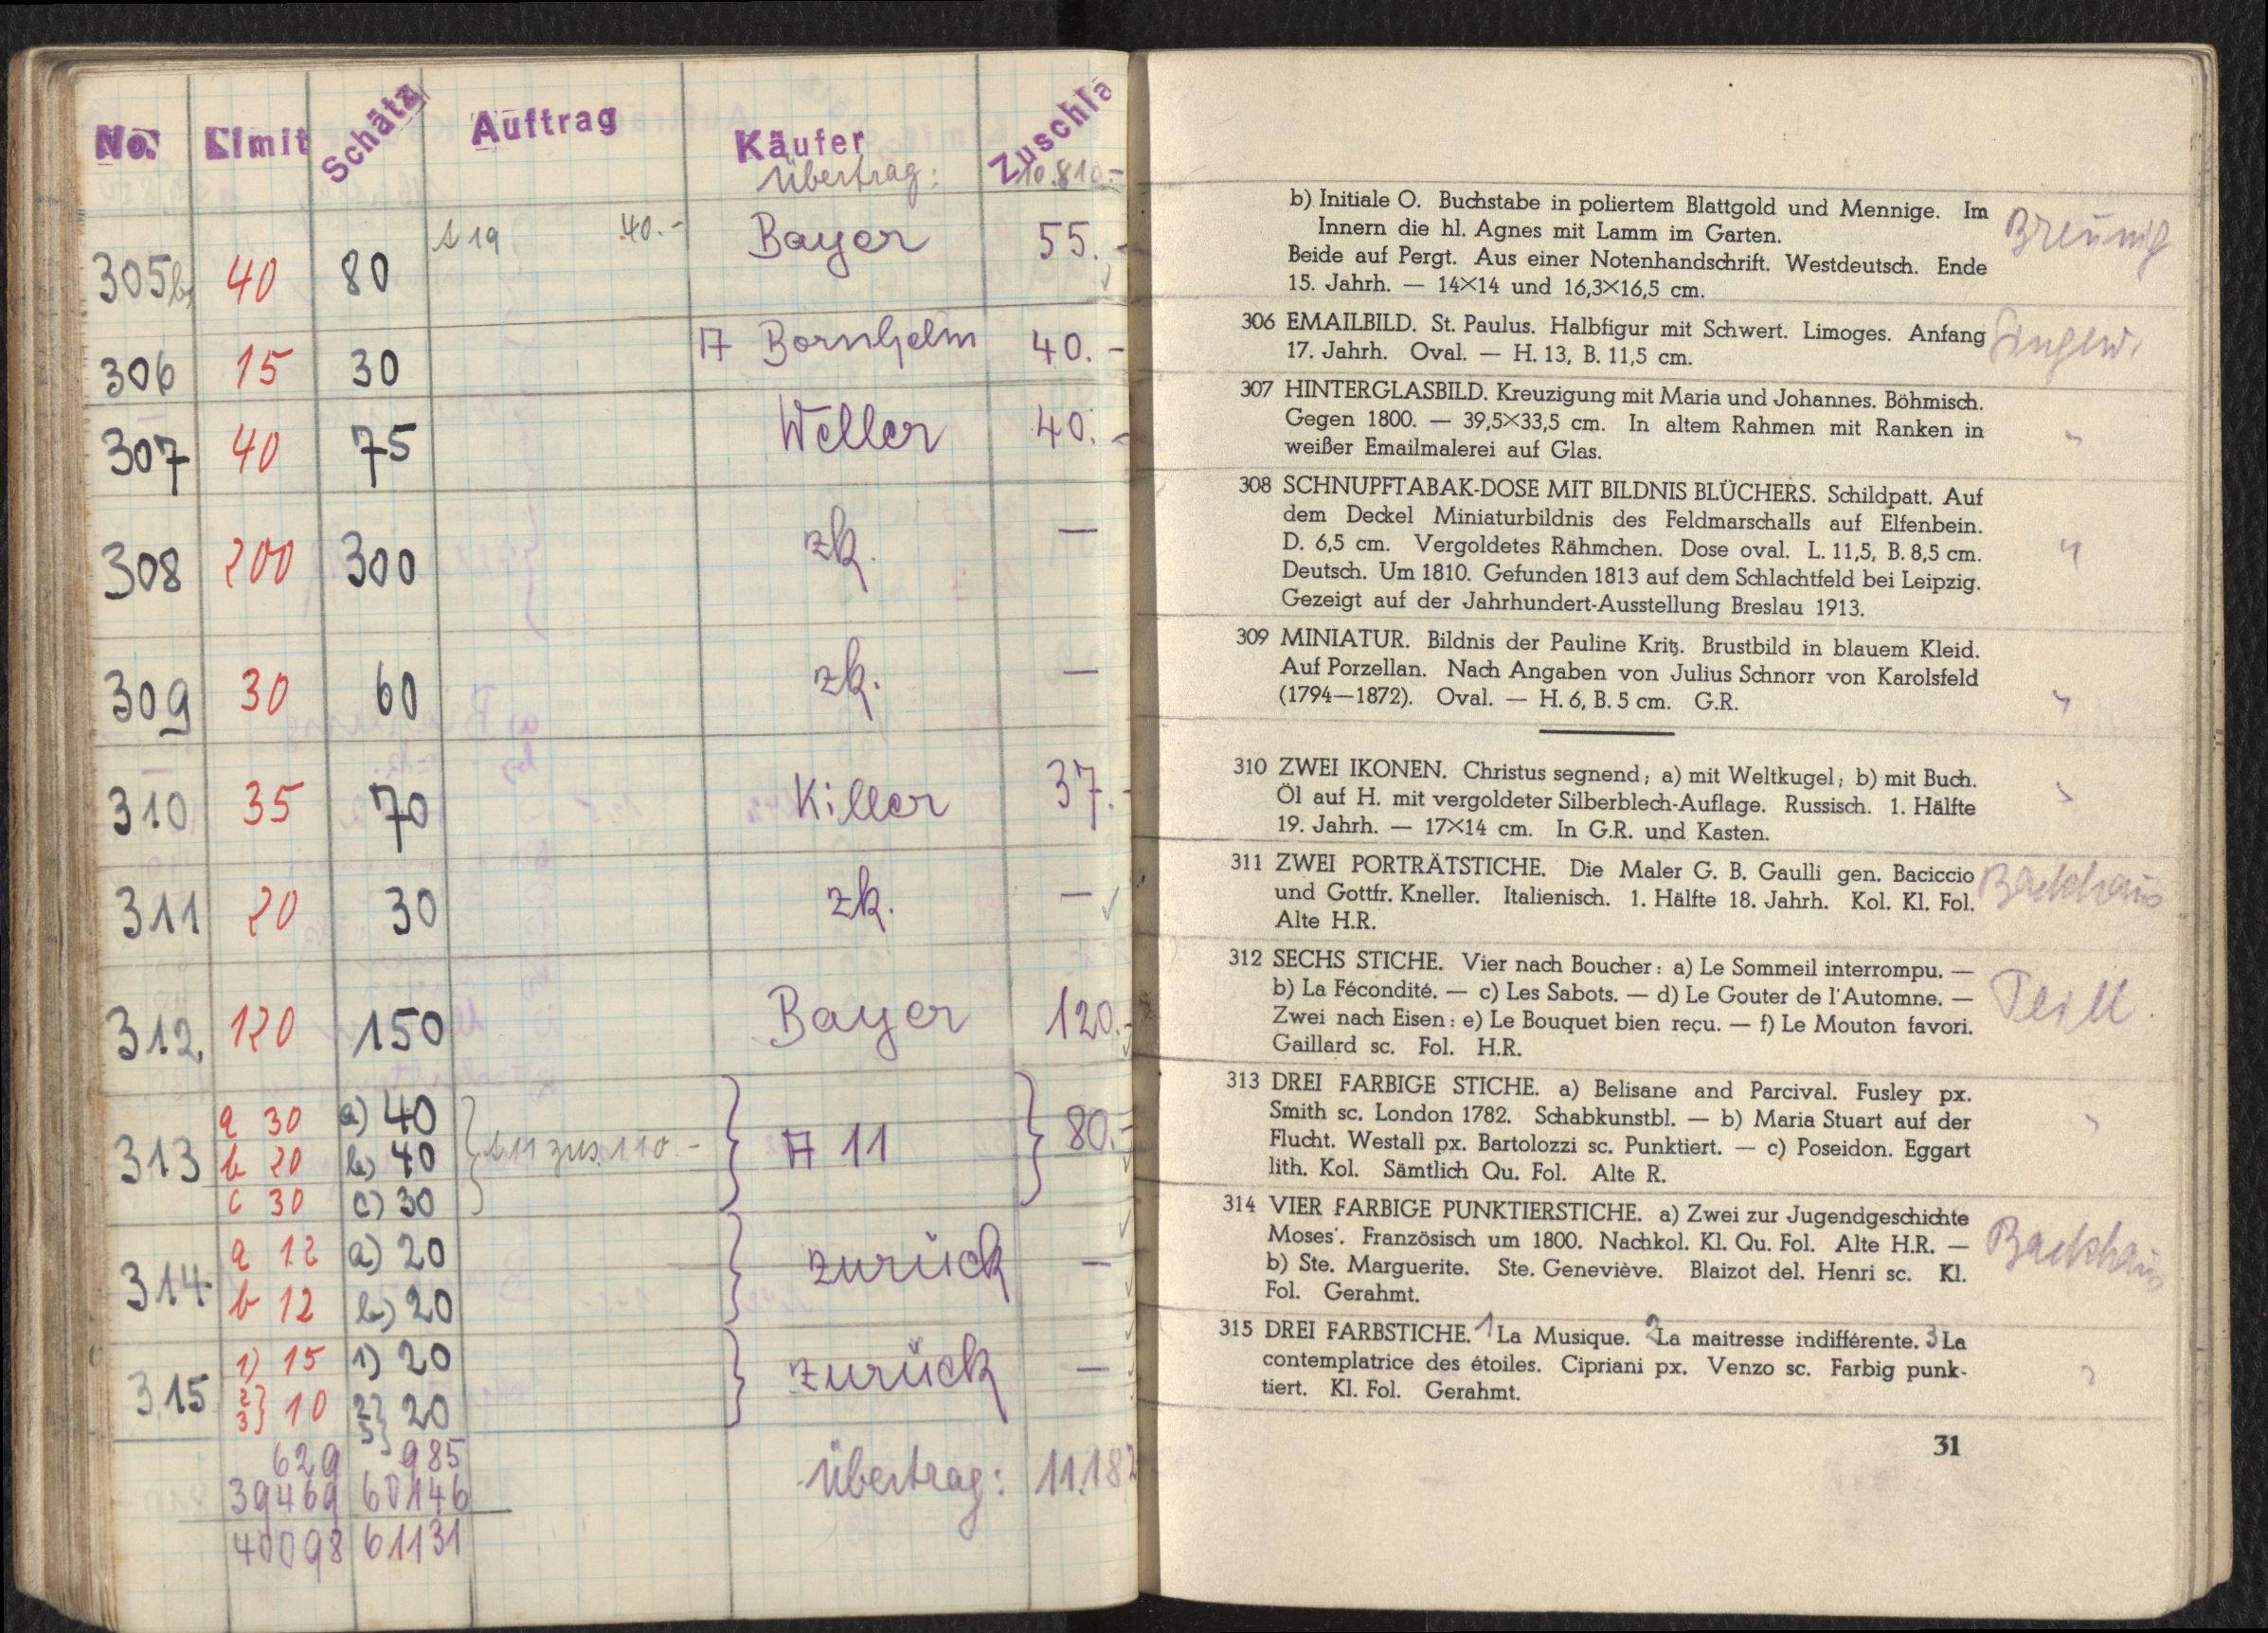 No. Limit Schätz Auftrag Käufer Zuschla
Übertrag: 10.810.-
305b) 40 80 19 40.- Bayer 55.-
306 15 30 A Bornhelm 40.-
307 40 75 Weller 40.-
308 200 300 zk. —
309 30 60 zk. —
310 35 70 Killer 37.-
311 20 30 zk. —
312. 120 150 Bayer 120.-
313 a 30 a) 40
b 20 b) 40 11 zus. 110.- A 11 80.-
c 30 c) 30
314 a 12 a) 20 zurück —
b 12 b) 20
315 1) 15 1) 20 zurück —
2 3} 10 2 3} 20
629 985
39469 60146
40098 61131
Übertrag: 11.182
b) Initiale O. Buchstabe in poliertem Blattgold und Mennige. Im
Innern die hl. Agnes mit Lamm im Garten.
Breunig
Beide auf Pergt. Aus einer Notenhandschrift. Westdeutsch. Ende
15. Jahrh. — 14×14 und 16,3×16,5 cm.
306 EMAILBILD. St. Paulus. Halbfigur mit Schwert. Limoges. Anfang
17. Jahrh. Oval. — H. 13, B. 11,5 cm.
307 HINTERGLASBILD. Kreuzigung mit Maria und Johannes. Böhmisch.
Gegen 1800. — 39,5×33,5 cm. In altem Rahmen mit Ranken in "
weißer Emailmalerei auf Glas.
308 SCHNUPFTABAK-DOSE MIT BILDNIS BLÜCHERS. Schildpatt. Auf
dem Deckel Miniaturbildnis des Feldmarschalls auf Elfenbein.
D. 6,5 cm. Vergoldetes Rähmchen. Dose oval. L. 11,5, B. 8,5 cm. "
Deutsch. Um 1810. Gefunden 1813 auf dem Schlachtfeld bei Leipzig.
Gezeigt auf der Jahrhundert-Ausstellung Breslau 1913.
309 MINIATUR. Bildnis der Pauline Kritz. Brustbild in blauem Kleid.
Auf Porzellan. Nach Angaben von Julius Schnorr von Karolsfeld
(1794—1872). Oval. — H. 6, B. 5 cm. G.R. "
310 ZWEI IKONEN. Christus segnend; a) mit Weltkugel; b) mit Buch.
Öl auf H. mit vergoldeter Silberblech-Auflage. Russisch. 1. Hälfte "
19. Jahrh. — 17×14 cm. In G.R. und Kasten.
311 ZWEI PORTRÄTSTICHE. Die Maler G. B. Gaulli gen. Baciccio Backhaus
und Gottfr. Kneller. Italienisch. 1. Hälfte 18. Jahrh. Kol. Kl. Fol.
Alte H.R.
312 SECHS STICHE. Vier nach Boucher: a) Le Sommeil interrompu. —
b) La Fécondité. — c) Les Sabots. — d) Le Gouter de l'Automne. —
Zwei nach Eisen: e) Le Bouquet bien reçu. — f) Le Mouton favori.
Gaillard sc. Fol. H.R.
313 DREI FARBIGE STICHE. a) Belisane and Parcival. Fusley px.
Smith sc. London 1782. Schabkunstbl. — b) Maria Stuart auf der "
Flucht. Westall px. Bartolozzi sc. Punktiert. — c) Poseidon. Eggart
lith. Kol. Sämtlich Qu. Fol. Alte R.
314 VIER FARBIGE PUNKTIERSTICHE. a) Zwei zur Jugendgeschichte
Moses'. Französisch um 1800. Nachkol. Kl. Qu. Fol. Alte H.R. — Backhaus
b) Ste. Marguerite. Ste. Geneviève. Blaizot del. Henri sc. Kl.
Fol. Gerahmt.
315 DREI FARBSTICHE. 1 La Musique. 2 La maitresse indifférente. 3 La
contemplatrice des étoiles. Cipriani px. Venzo sc. Farbig punk- "
tiert. Kl. Fol. Gerahmt.
31